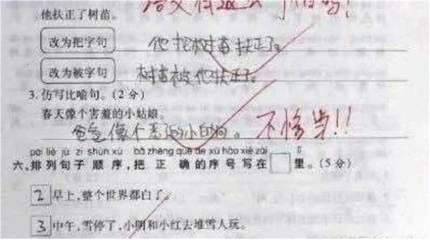 他扶正了树苗。
改为把字句 他把树苗扶正了。
改为被字句 树苗被他扶正了。
3.仿写比喻句。(2分)
春天像个害羞的小姑娘。
爸爸像个小白狗。 不修身!!
pái liè jù zi shùn xù bǎ zhèng què de xù hào xiě zài
六、排列句子顺序,把正确的序号写在 里。(5分)
2 早上,整个世界都白了。
3 中午,雪停了,小明和小红去堆雪人玩。